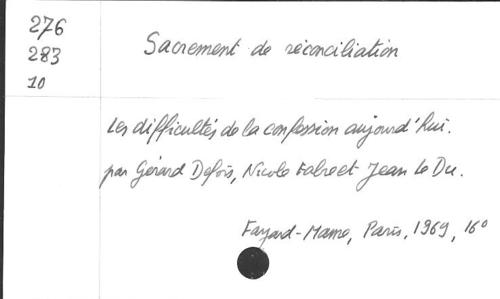 276
283
10
Sacrement de réconciliation
Les difficultés de la confession aujourd'hui.
par Gérard Defois, Nicole Fabre et Jean Le Du.
Fayard-Mame, Paris, 1969, 16°